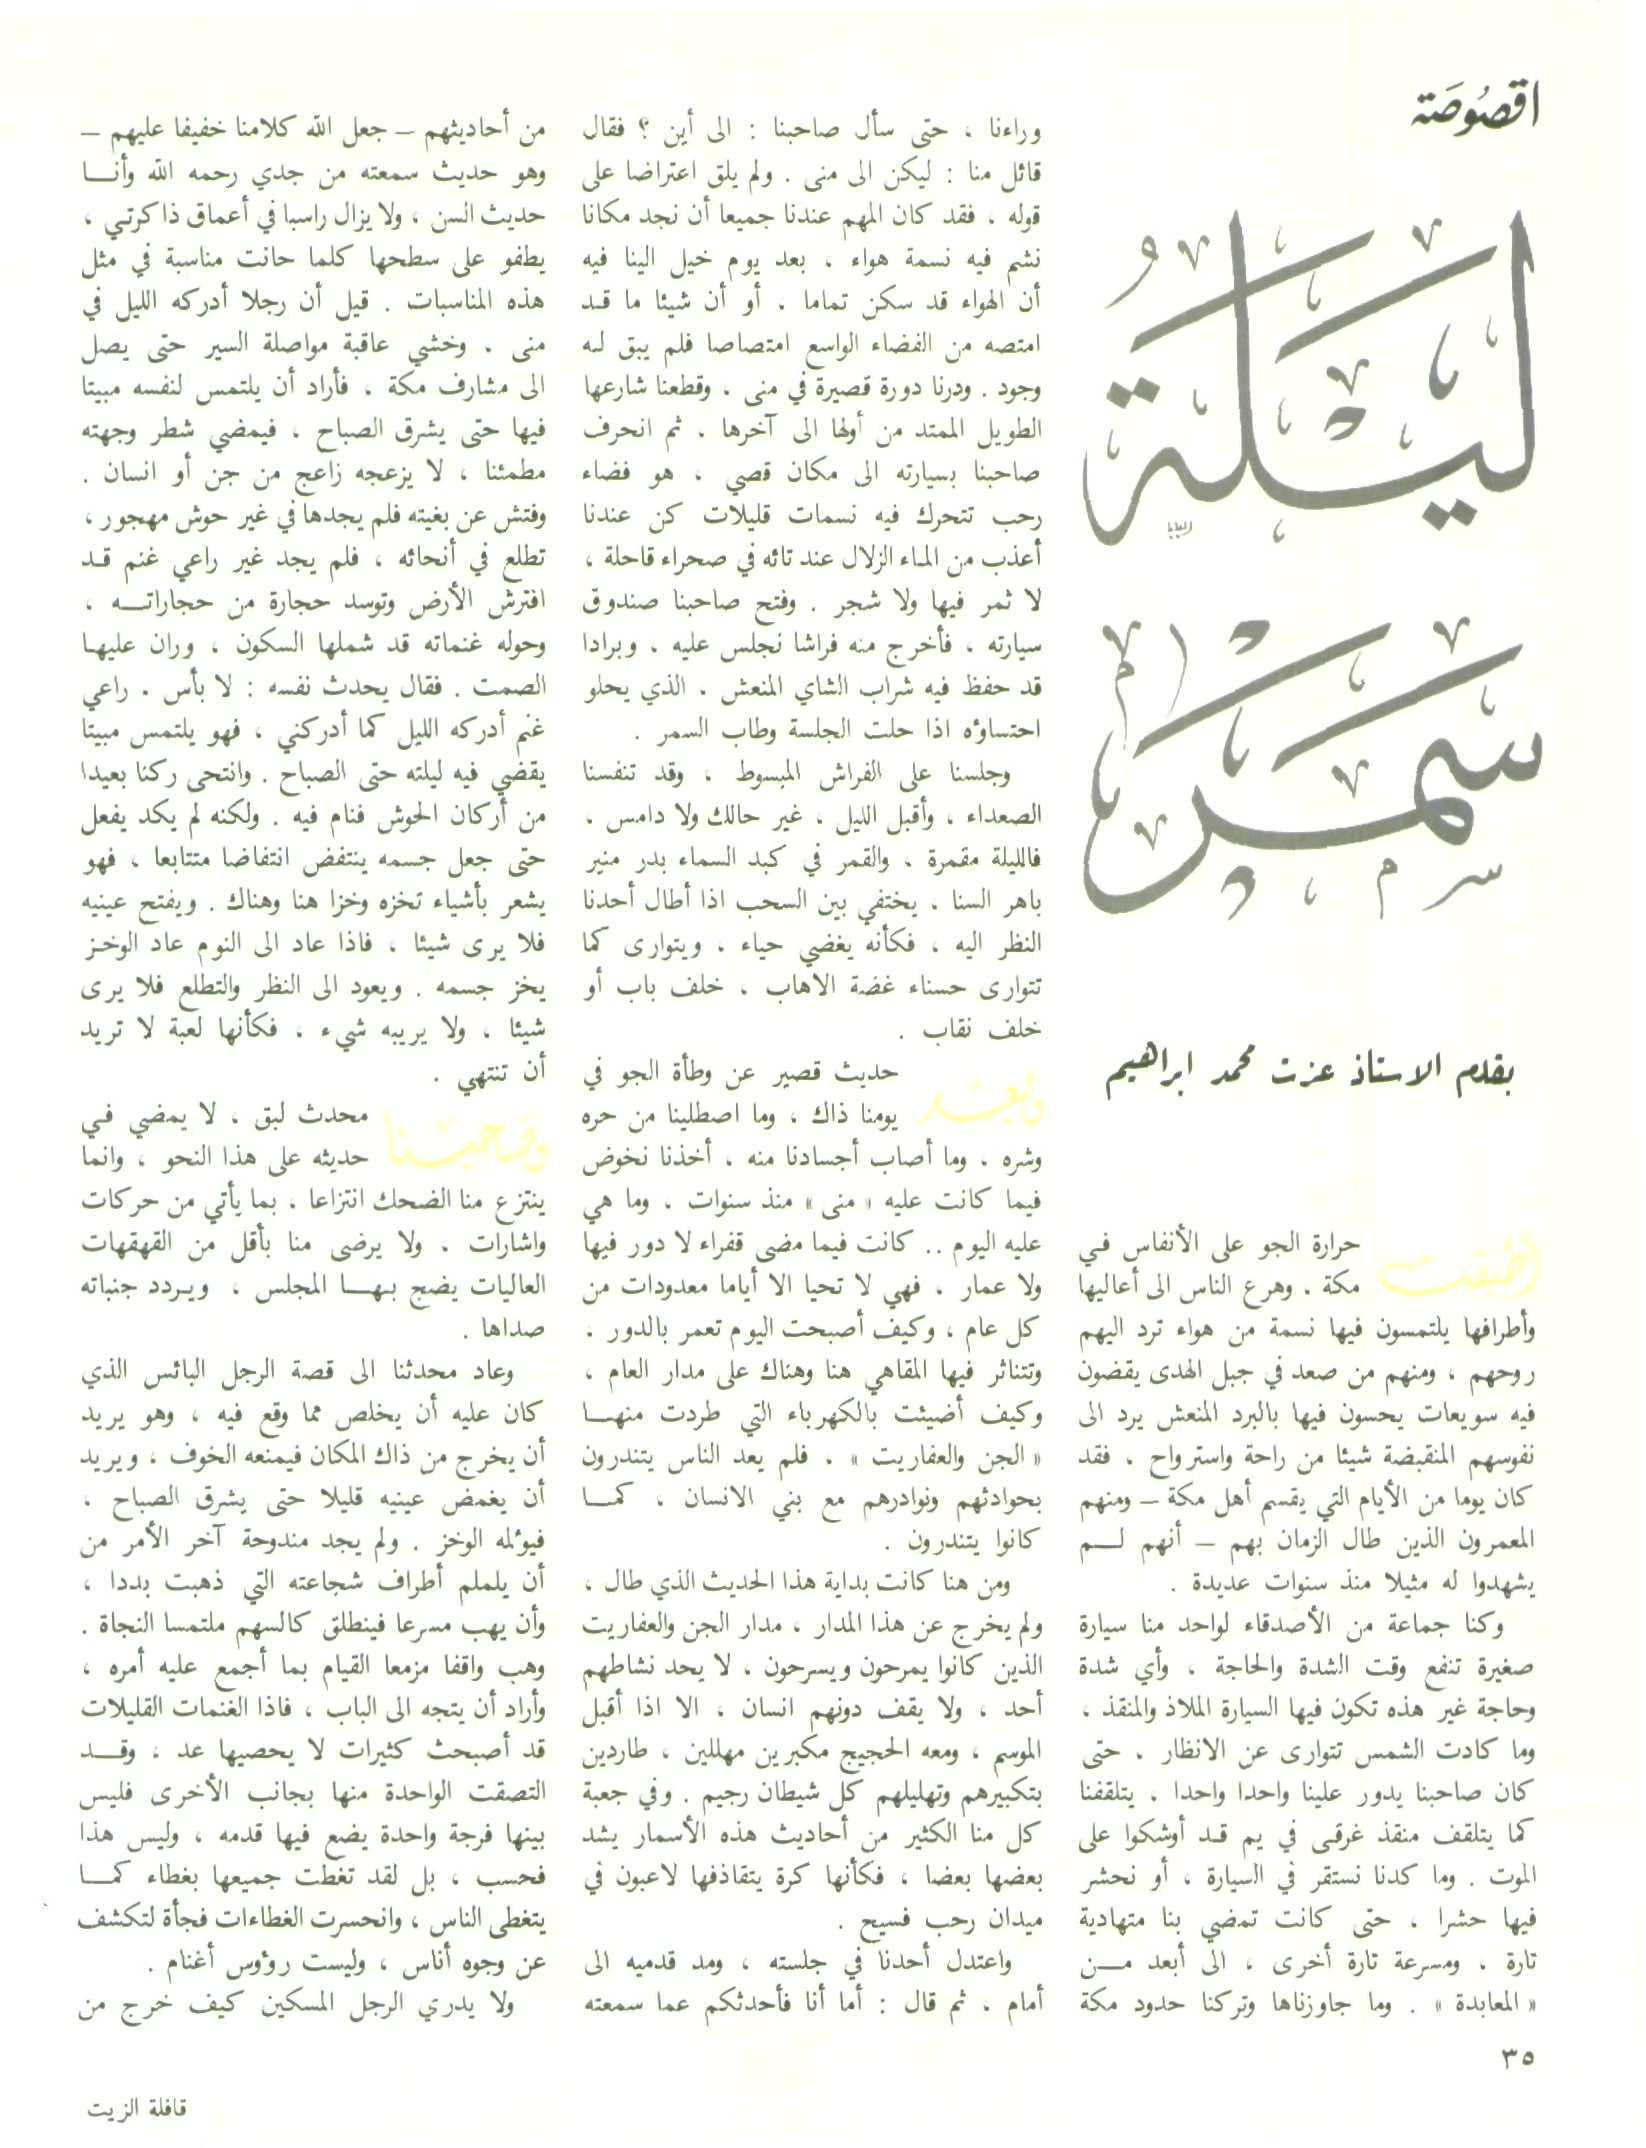 اقصوصة
ليلة
سمر
بقلم الاستاذ عزت محمد ابراهيم
أطبقت حرارة الجو على الأنفاس في
مكة ، وهرع الناس الى أعاليها
وأطرافها يلتمسون فيها نسمة من هواء ترد اليهم
روحهم ، ومنهم من صعد في جبل الهدى يقضون
فيه سويعات يحسون فيها بالبرد المنعش يرد الى
نفوسهم المنقبضة شيئا من راحة واسترواح ، فقد
كان يوما من الأيام التي يقسم أهل مكة – ومنهم
المعمرون الذين طال الزمان بهم – أنهم لم
يشهدوا له مثيلا منذ سنوات عديدة .
وكنا جماعة من الأصدقاء لواحد منا سيارة
صغيرة تنفع وقت الشدة والحاجة ، وأي شدة
وحاجة غير هذه تكون فيها السيارة الملاذ والمنقذ ،
وما كادت الشمس تتوارى عن الانظار ، حتى
كان صاحبنا يدور علينا واحدا واحدا ، يتلقفنا
كما يتلقف منقذ غرقى في يم قد أوشكوا على
الموت . وما كدنا نستقر في السيارة ، أو نحشر
فيها حشرا ، حتى كانت تمضي بنا متهادية
تارة ، ومسرعة تارة أخرى ، الى أبعد من
« المعابدة » . وما جاوزناها وتركنا حدود مكة
وراءنا ، حتى سأل صاحبنا : الى أين ؟ فقال
قائل منا : ليكن الى منى . ولم يلق اعتراضا على
قوله ، فقد كان المهم عندنا جميعا أن نجد مكانا
نشم فيه نسمة هواء ، بعد يوم خيل الينا فيه
أن الهواء قد سكن تماما ، أو أن شيئا ما قد
امتصه من الفضاء الواسع امتصاصا فلم يبق له
وجود . ودرنا دورة قصيرة في منى ، وقطعنا شارعها
الطويل الممتد من أولها الى آخرها . ثم انحرف
صاحبنا بسيارته الى مكان قصي ، هو فضاء
رحب تتحرك فيه نسمات قليلات كن عندنا
أعذب من الماء الزلال عند تائه في صحراء قاحلة ،
لا ثمر فيها ولا شجر . وفتح صاحبنا صندوق
سيارته ، فأخرج منه فراشا نجلس عليه ، وبرادا
قد حفظ فيه شراب الشاي المنعش ، الذي يحلو
احتساؤه اذا حلت الجلسة وطاب السمر .
وجلسنا على الفراش المبسوط ، وقد تنفسنا
الصعداء ، وأقبل الليل ، غير حالك ولا دامس ،
فالليلة مقمرة ، والقمر في كبد السماء بدر منير
باهر السنا ، يختفي بين السحب اذا أطال أحدنا
النظر اليه ، فكأنه يغضي حياء ، ويتوارى كما
تتوارى حسناء غضة الاهاب ، خلف باب أو
خلف نقاب .
وبعد حديث قصير عن وطأة الجو في
يومنا ذاك ، وما اصطلينا من حره
وشره ، وما أصاب أجسادنا منه ، أخذنا نخوض
فيما كانت عليه « منى » منذ سنوات ، وما هي
عليه اليوم .. كانت فيما مضى قفراء لا دور فيها
ولا عمار ، فهي لا تحيا الا أياما معدودات من
كل عام ، وكيف أصبحت اليوم تعمر بالدور ،
وتتناثر فيها المقاهي هنا وهناك على مدار العام ،
وكيف أضيئت بالكهرباء التي طردت منها
« الجن والعفاريت » ، فلم يعد الناس يتندرون
بحوادثهم ونوادرهم مع بني الانسان ، كما
كانوا يتندرون .
ومن هنا كانت بداية هذا الحديث الذي طال ،
ولم يخرج عن هذا المدار ، مدار الجن والعفاريت
الذين كانوا يمرحون ويسرحون ، لا يحد نشاطهم
أحد ، ولا يقف دونهم انسان ، الا اذا أقبل
الموسم ، ومعه الحجيج مكبرين مهللين ، طاردين
بتكبيرهم وتهليلهم كل شيطان رجيم . وفي جعبة
كل منا الكثير من أحاديث هذه الأسمار يشد
بعضها بعضا ، فكأنها كرة يتقاذفها لاعبون في
ميدان رحب فسيح .
واعتدل أحدنا في جلسته ، ومد قدميه الى
أمام ، ثم قال : أما أنا فأحدثكم عما سمعته
من أحاديثهم – جعل الله كلامنا خفيفا عليهم –
وهو حديث سمعته من جدي رحمه الله وأنا
حديث السن ، ولا يزال راسبا في أعماق ذاكرتي ،
يطفو على سطحها كلما حانت مناسبة في مثل
هذه المناسبات . قيل أن رجلا أدركه الليل في
منى ، وخشي عاقبة مواصلة السير حتى يصل
الى مشارف مكة ، فأراد أن يلتمس لنفسه مبيتا
فيها حتى يشرق الصباح ، فيمضي شطر وجهته
مطمئنا ، لا يزعجه زاعج من جن أو انسان .
وفتش عن بغيته فلم يجدها في غير حوش مهجور ،
تطلع في أنحائه ، فلم يجد غير راعي غنم قد
افترش الأرض وتوسد حجارة من حجاراته ،
وحوله غنماته قد شملها السكون ، وران عليها
الصمت . فقال يحدث نفسه : لا بأس . راعي
غنم أدركه الليل كما أدركني ، فهو يلتمس مبيتا
يقضي فيه ليلته حتى الصباح . وانتحى ركنا بعيدا
من أركان الحوش فنام فيه . ولكنه لم يكد يفعل
حتى جعل جسمه ينتفض انتفاضا متتابعا ، فهو
يشعر بأشياء تخزه وخزا هنا وهناك . ويفتح عينيه
فلا يرى شيئا ، فاذا عاد الى النوم عاد الوخز
يخز جسمه . ويعود الى النظر والتطلع فلا يرى
شيئا ، ولا يريبه شيء ، فكأنها لعبة لا تريد
أن تنتهي .
وصاحبنا محدث لبق ، لا يمضي في
حديثه على هذا النحو ، وانما
ينتزع منا الضحك انتزاعا ، بما يأتي من حركات
واشارات . ولا يرضى منا بأقل من القهقهات
العاليات يضج بها المجلس ، ويردد جنباته
صداها .
وعاد محدثنا الى قصة الرجل البائس الذي
كان عليه أن يخلص مما وقع فيه ، وهو يريد
أن يخرج من ذاك المكان فيمنعه الخوف ، ويريد
أن يغمض عينيه قليلا حتى يشرق الصباح ،
فيؤلمه الوخز . ولم يجد مندوحة آخر الأمر من
أن يلملم أطراف شجاعته التي ذهبت بددا ،
وأن يهب مسرعا فينطلق كالسهم ملتمسا النجاة .
وهب واقفا مزمعا القيام بما أجمع عليه أمره ،
وأراد أن يتجه الى الباب ، فاذا الغنمات القليلات
قد أصبحت كثيرات لا يحصيها عد ، وقد
التصقت الواحدة منها بجانب الأخرى فليس
بينها فرجة واحدة يضع فيها قدمه ، وليس هذا
فحسب ، بل لقد تغطت جميعها بغطاء كما
يتغطى الناس ، وانحسرت الغطاءات فجأة لتكشف
عن وجوه أناس ، وليست رؤوس أغنام .
ولا يدري الرجل المسكين كيف خرج من
٣٥
قافلة الزيت